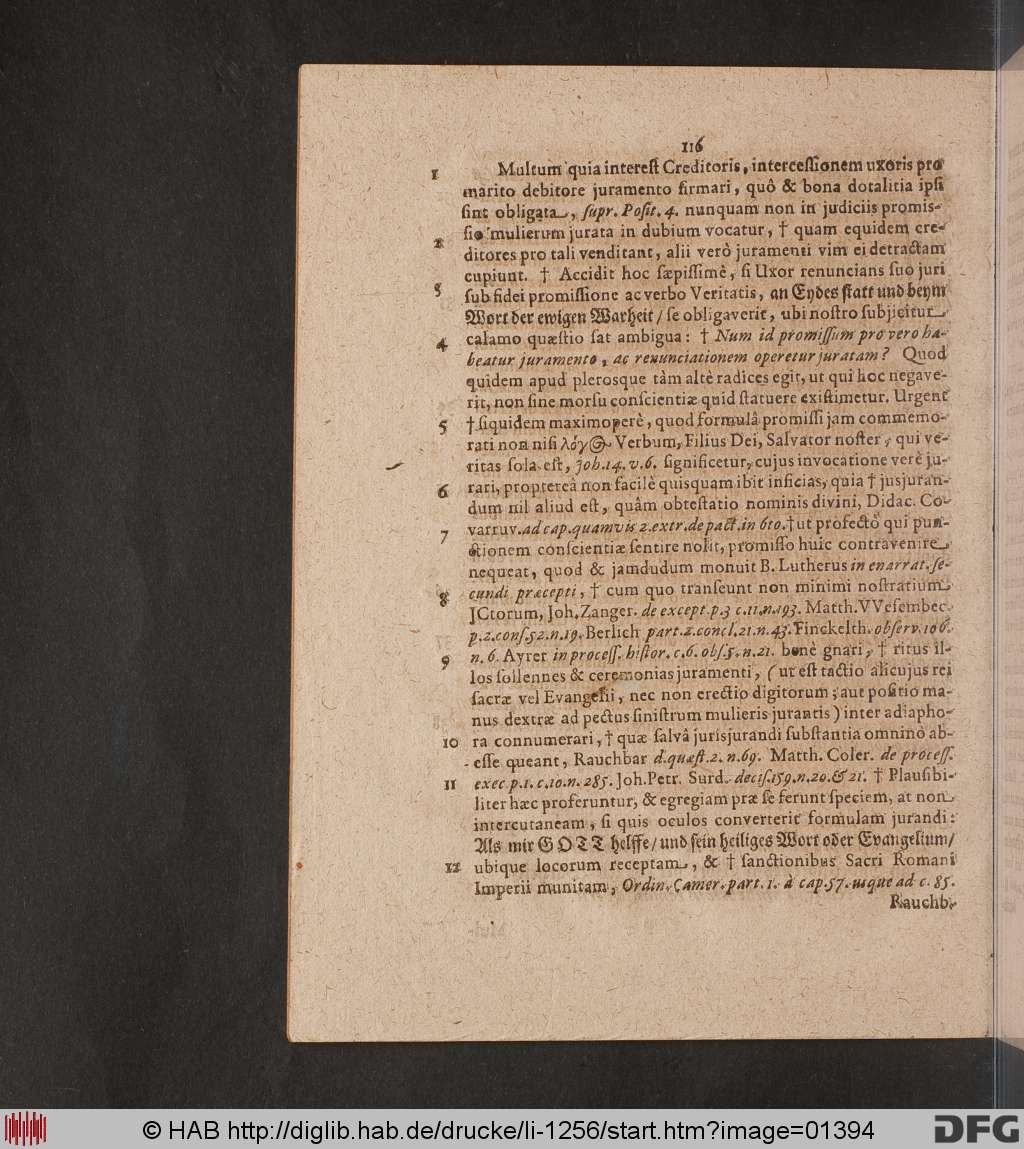 116
1 Multum quia interest Creditoris, intercessionem uxoris pro
marito debitore juramento firmari, quô & bona dotalitia ipsi
sint obligata, supr. Posit. 4. nunquam non in judiciis promis-
2 sio mulierum jurata in dubium vocatur, † quam equidem cre-
ditores pro tali venditant, alii verò juramenti vim ei detractam
cupiunt. † Accidit hoc sæpissimè, si Uxor renuncians suo juri
3 sub fidei promissione ac verbo Veritatis, an Eydes statt und beym
Wort der ewigen Warheit / se obligaverit, ubi nostro subjicitur
4 calamo quæstio sat ambigua: † Num id promissum pro vero ha-
beatur juramento, ac renunciationem operetur juratam? Quod
quidem apud plerosque tàm altè radices egit, ut qui hoc negave-
rit, non sine morsu conscientiæ quid statuere existimetur. Urgent
5 † siquidem maximoperè, quod formulâ promissi jam commemo-
rati non nisi λόγος Verbum, Filius Dei, Salvator noster, qui ve-
ritas sola est, Joh. 14. v. 6. significetur, cujus invocatione verè ju-
6 rari, proptereà non facilè quisquam ibit inficias, quia † jusjuran-
dum nil aliud est, quâm obtestatio nominis divini, Didac. Co-
7 varruv. ad cap. quamvis 2. extr. de pact. in 6to. † ut profectò qui pun-
ctionem conscientiæ sentire nolit, promisso huic contravenire
nequeat, quod & jamdudum monuit B. Lutherus in enarrat. se-
8 cundi præcepti, † cum quo transeunt non minimi nostratium
JCtorum, Joh. Zanger. de except. p. 3 c. 11. n. 193. Matth. VVesembec.
p. 2. cons. 52. n. 19. Berlich part. 2. concl. 21. n. 43. Finckelth. observ. 106.
9 n. 6. Ayrer in process. histor. c. 6. obs. 5. n. 21. benè gnari, † ritus il-
los sollennes & ceremonias juramenti, (ut est tactio alicujus rei
sacræ vel Evangelii, nec non erectio digitorum; aut positio ma-
nus dextræ ad pectus sinistrum mulieris jurantis) inter adiapho-
10 ra connumerari, † quæ salvâ jurisjurandi substantia omninò ab-
esse queant, Rauchbar d. quæst. 2. n. 69. Matth. Coler. de process.
11 exec. p. 1. c. 10. n. 285. Joh. Petr. Surd. decis. 159. n. 20. & 21. † Plausibi-
liter hæc proferuntur, & egregiam præ se ferunt speciem, at non
intercutaneam, si quis oculos converterit formulam jurandi:
Als mir GOTT helffe / und sein heiliges Wort oder Evangelium /
12 ubique locorum receptam, & † sanctionibus Sacri Romani
Imperii munitam, Ordin. Camer. part. 1. à cap. 57. usque ad c. 85.
Rauchb.
© HAB http://diglib.hab.de/drucke/li-1256/start.htm?image=01394
DFG